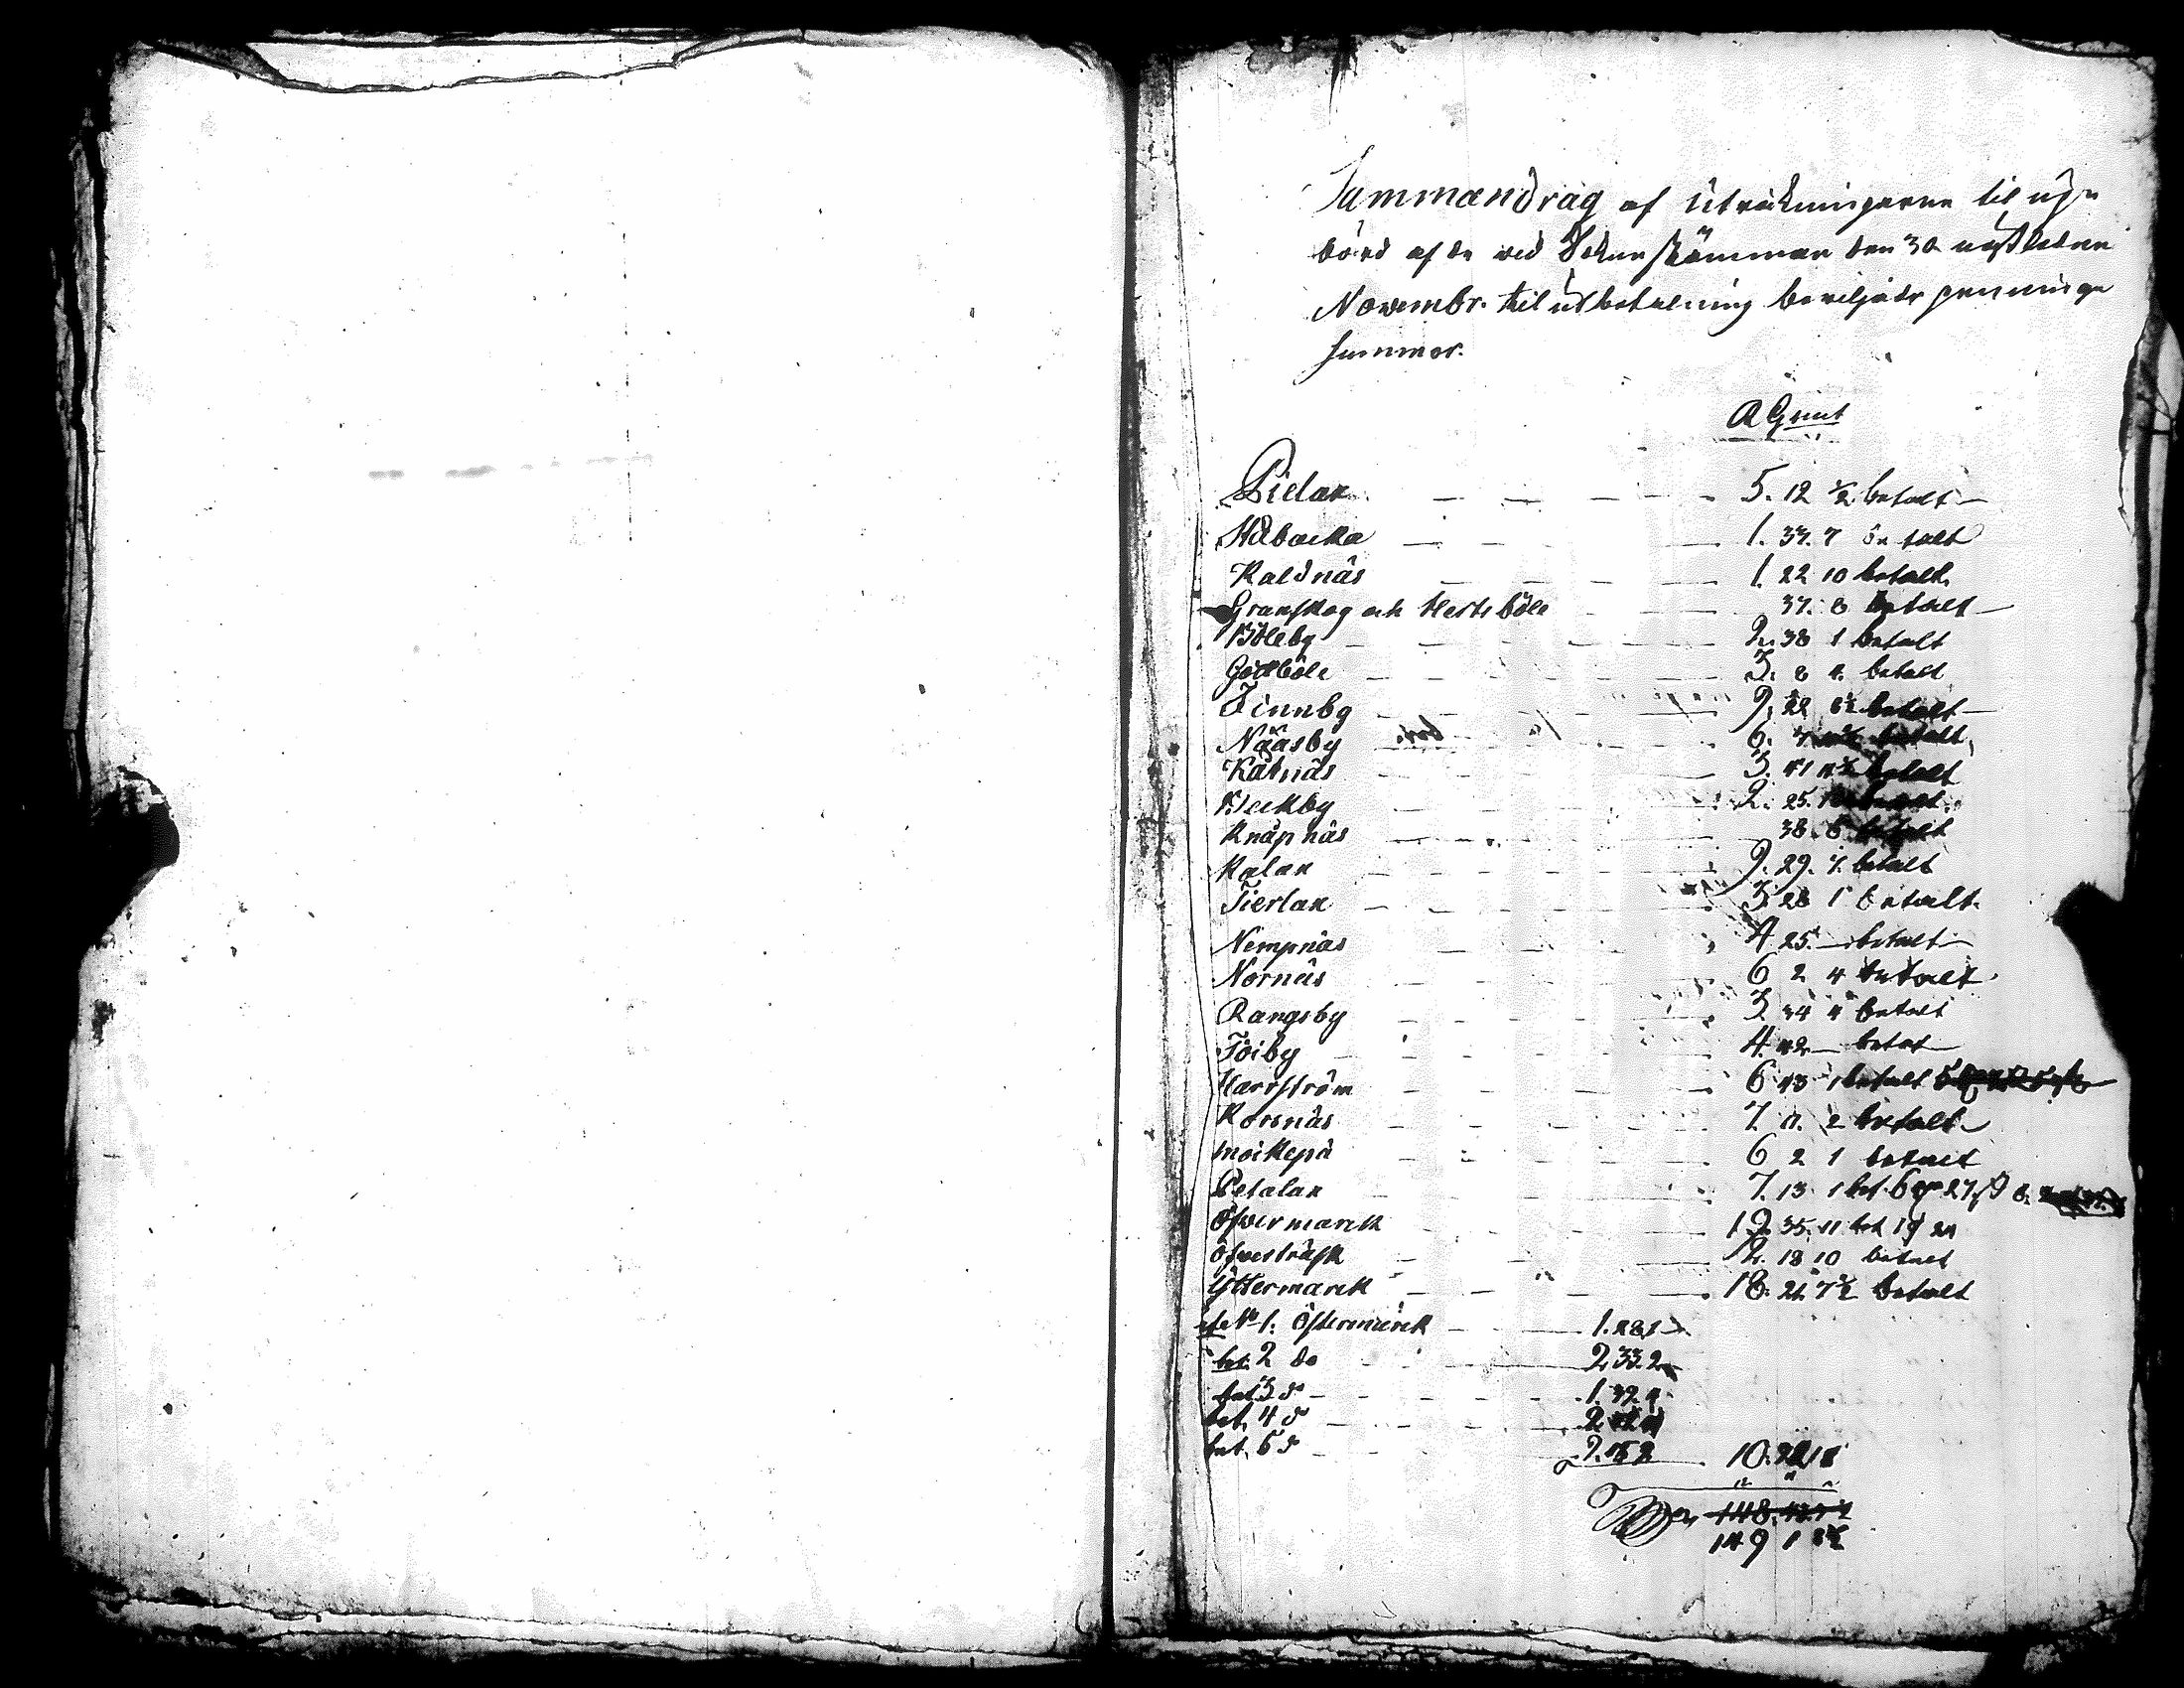 Sammandrag af Uträkningarne til up-
börd af de wid Sokne stämman den 30 nästledne
Novembr. til utbetalning beviljade penninge
Summor.
R Gemt
Pielax 5. 12 ½ betalt
Ståbacka 1. 37. 7 betalt
Kaldnäs 1. 22 10 betalt
Granskog och Hertsböle 37. 8 betalt
Böleby 2. 38 1 betalt
Gottböle 3. 8 betalt
Finnby 9. 22 betalt
Nääsby 6. betalt
Kåtnäs 3. 41 betalt
Bleckby 2. 25.
Knåpnäs 38. 8 betalt
Kalax 9. 29. 7. betalt
Tierlax 3 28 1 betalt
Nempnäs 4 25. betalt
Nornäs 6 2 4 betalt
Rangsby 3 34 4 betalt
Töiby 4. 42 betat
Harrström 6 43 1 betalt
Korsnäs 7. 11. 2 betalt
Moikepä 6 2 1 betalt
Petalax 7. 13 1 bet. 6 27
Öfvermarck 12. 35. 11 bet 19 24
Öfvesträsk 2. 18 10 betalt
Yttermarck 18. 21. 7½ betalt
No 1: Östermarck 1. 28 1
bet. 2 do 2 33. 2
bet 3 do 1. 32 4
bet. 4 do 2
bet. 5 do 2. 15 2 10.
148.
149 1